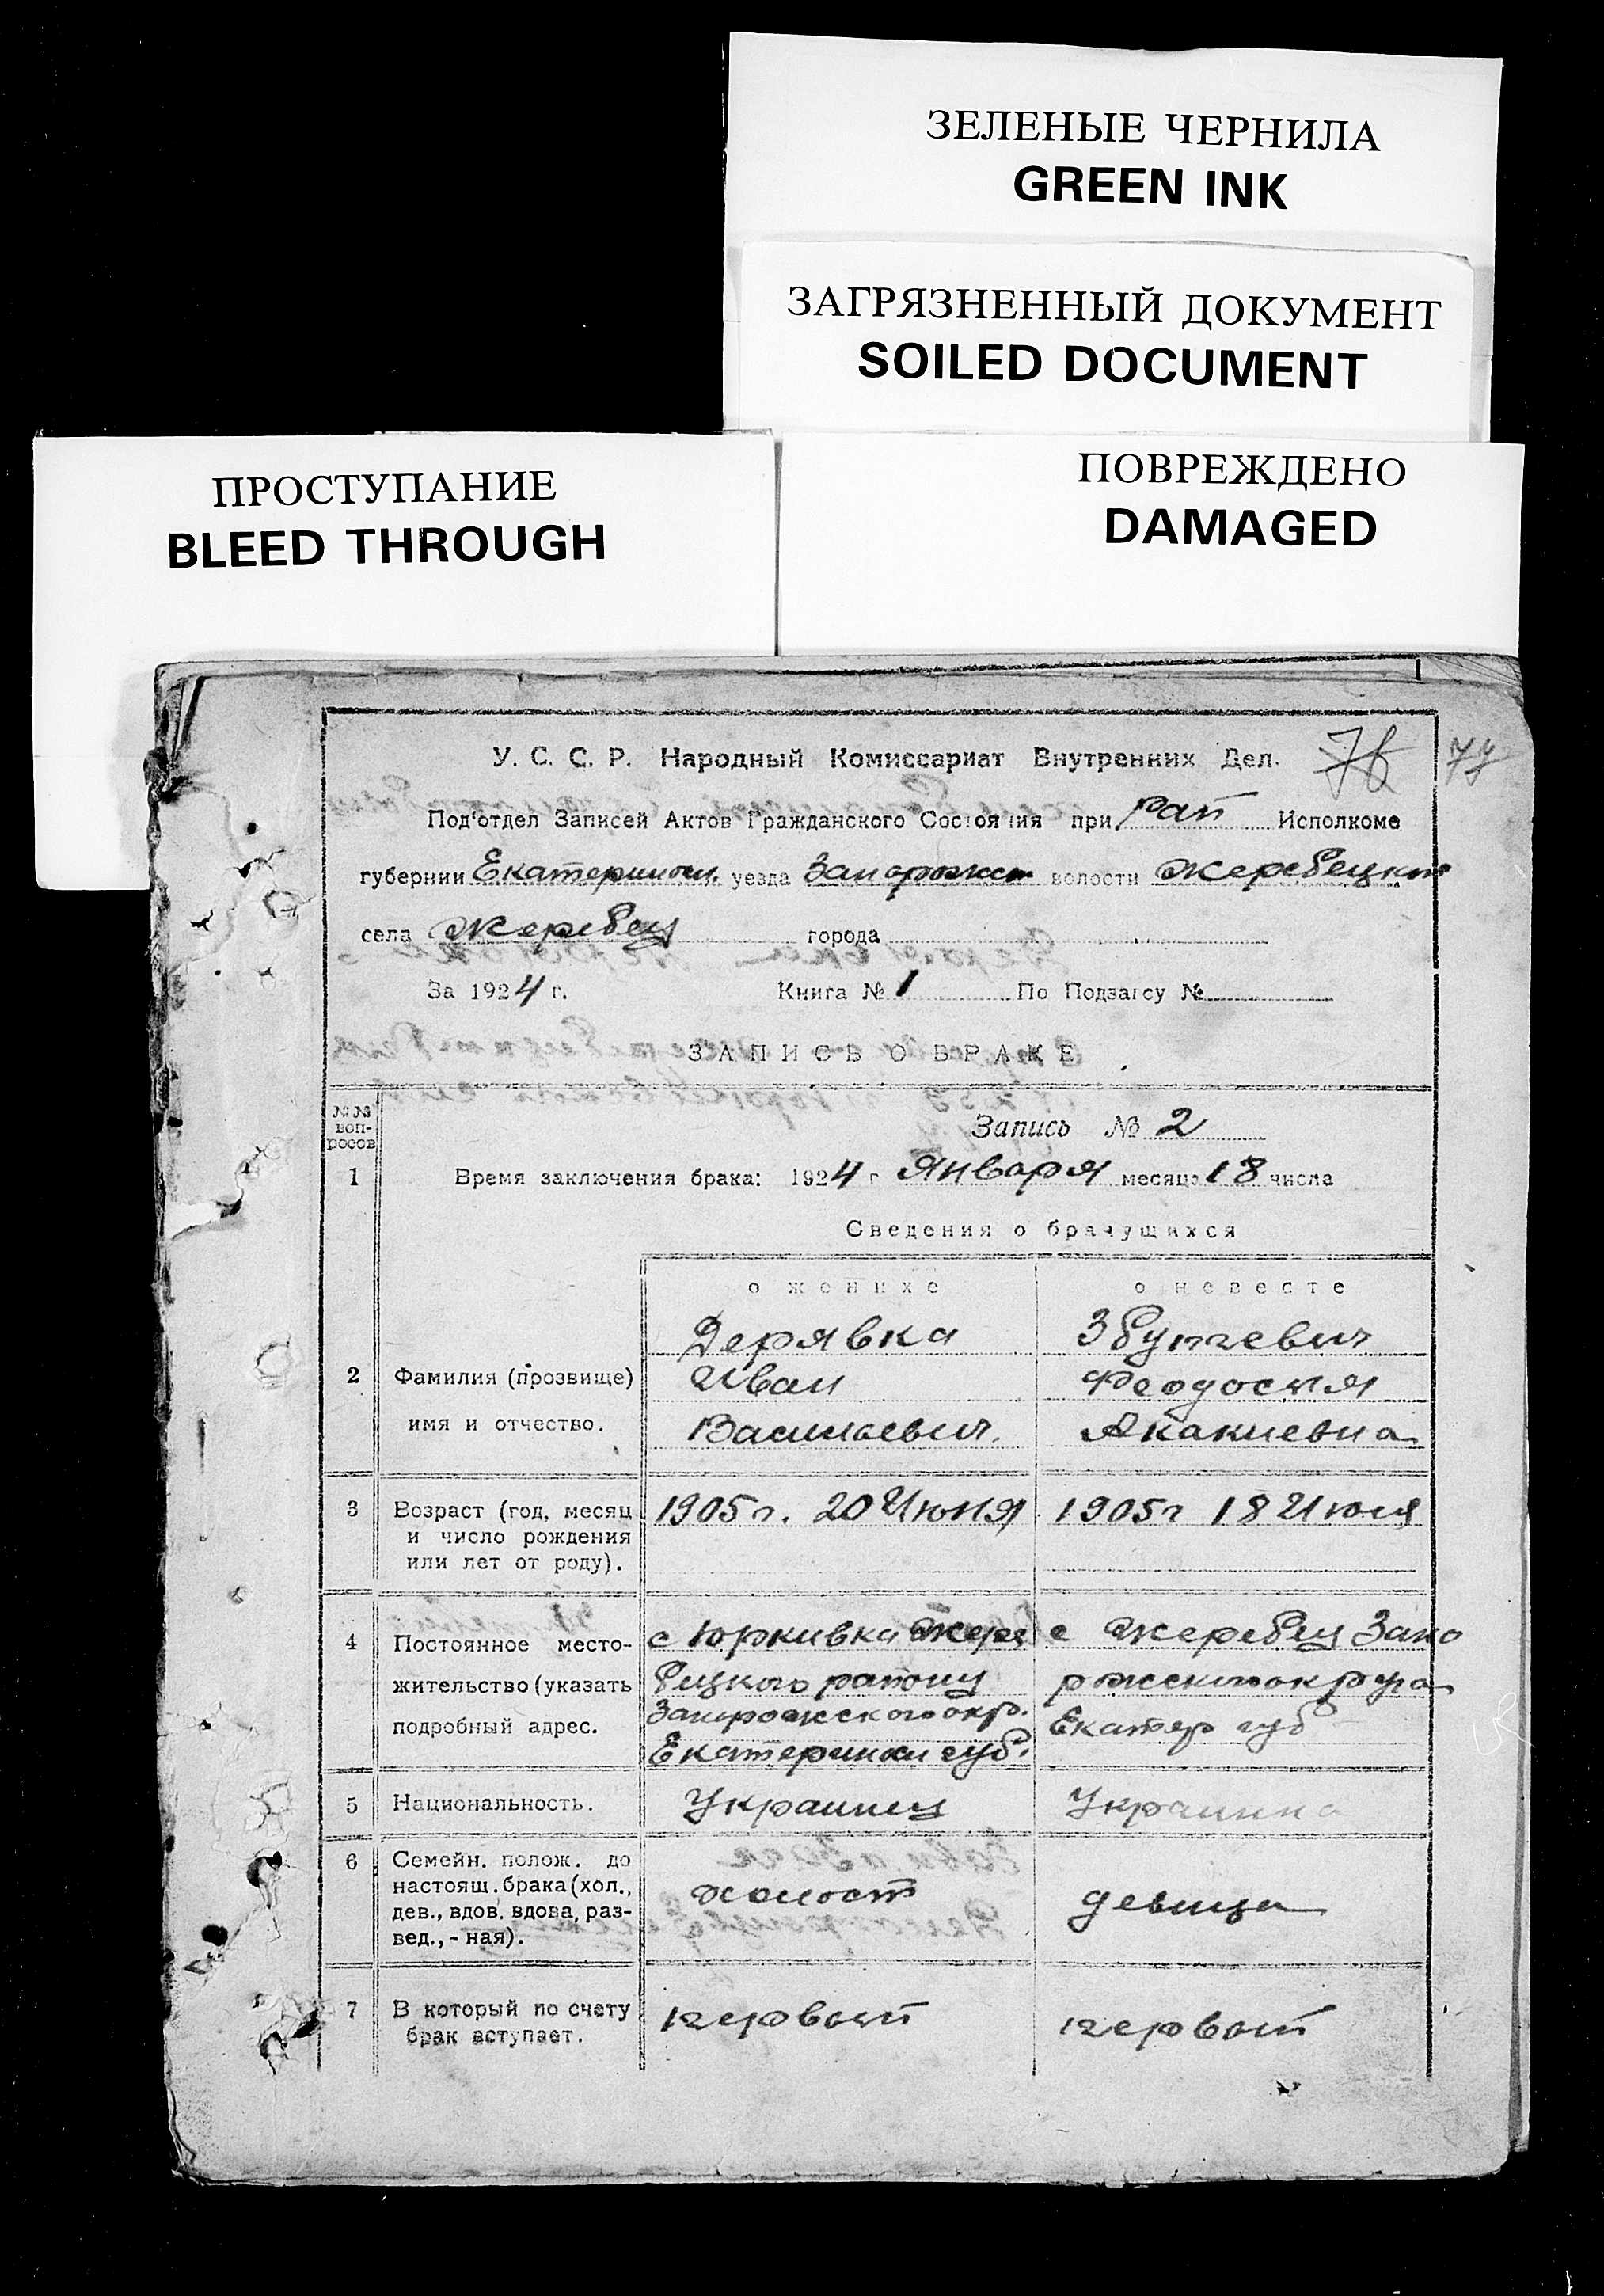 ЗЕЛЕНЫЕ ЧЕРНИЛА
GREEN INK
ЗАГРЯЗНЕННЫЙ ДОКУМЕНТ
SOILED DOCUMENT
ПРОСТУПАНИЕ
BLEED THROUGH
ПОВРЕЖДЕНО
DAMAGED
76 77
У. С. С. Р. Народный Комиссариат Внутренних Дел.
Под'отдел Записей Актов Гражданского Состояния при Рай Исполкоме
губернии Екатеринос. уезда Запорожск волости Жеребецкой
села Жеребец города
За 1924 г. Книга № 1 По Подзагсу №
ЗАПИСЬ О БРАКЕ
№№ вопросов
Запись № 2
1 Время заключения брака: 1924 г Января месяца 18 числа
Сведения о брачущихся
о женихе о невесте
Дерявка
Иван
Васильевич.
Феодосия
Акакиевна
2 Фамилия (прозвище)
имя и отчество.
3 Возраст (год, месяц
и число рождения
или лет от роду).
1905 г. 20 Июня 1905 г 18 Июля
4 Постоянное место-
жительство (указать
подробный адрес.
с Юркивка Жере
бецкого району
Запорожского окр.
Екатеринос губ.
с Жеребец Запо
рожского округа
Екатер губ
5 Национальность. Украинец Украинка
6 Семейн. полож. до
настоящ. брака (хол.,
дев., вдов, вдова, раз-
вед., - ная).
холост девица
7 В который по счету
брак вступает.
первый первый